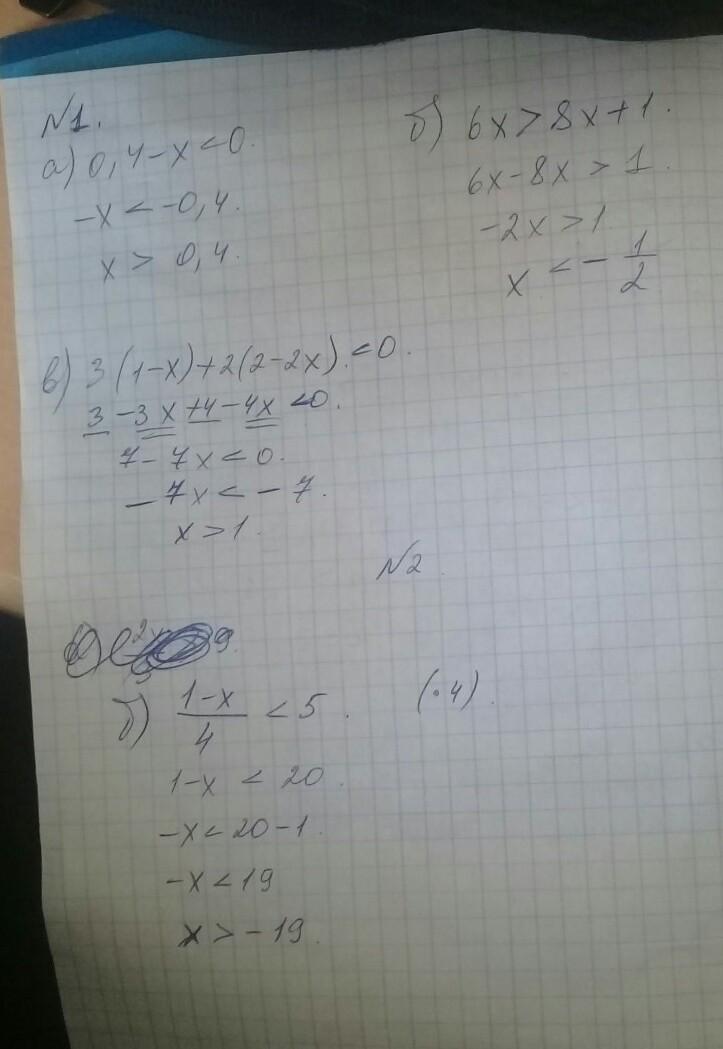 №1.
а) 0,4-x<0.
-x<-0,4.
x> 0,4.
б) 6x>8x+1.
6x-8x > 1.
-2x>1
x <-1/2
в) 3(1-x)+2(2-2x).<0.
3-3x+4-4x<0.
7-7x<0.
-7x<-7.
x>1.
№2.
б) (1-x)/4 < 5. (·4).
1-x < 20.
-x<20-1.
-x<19
x>-19.